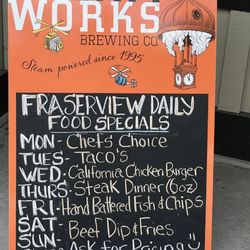 WORKS
BREWING CO
Steam powered since 1995
FRASERVIEW DAILY
FOOD SPECIALS
MON- Chefs Choice
TUES- Taco's
WED- California Chicken Burger
THURS- Steak Dinner (6oz)
FRI- Hand Battered Fish & Chips
SAT-
SUN- Beef Dip & Fries
Ask for Pricing